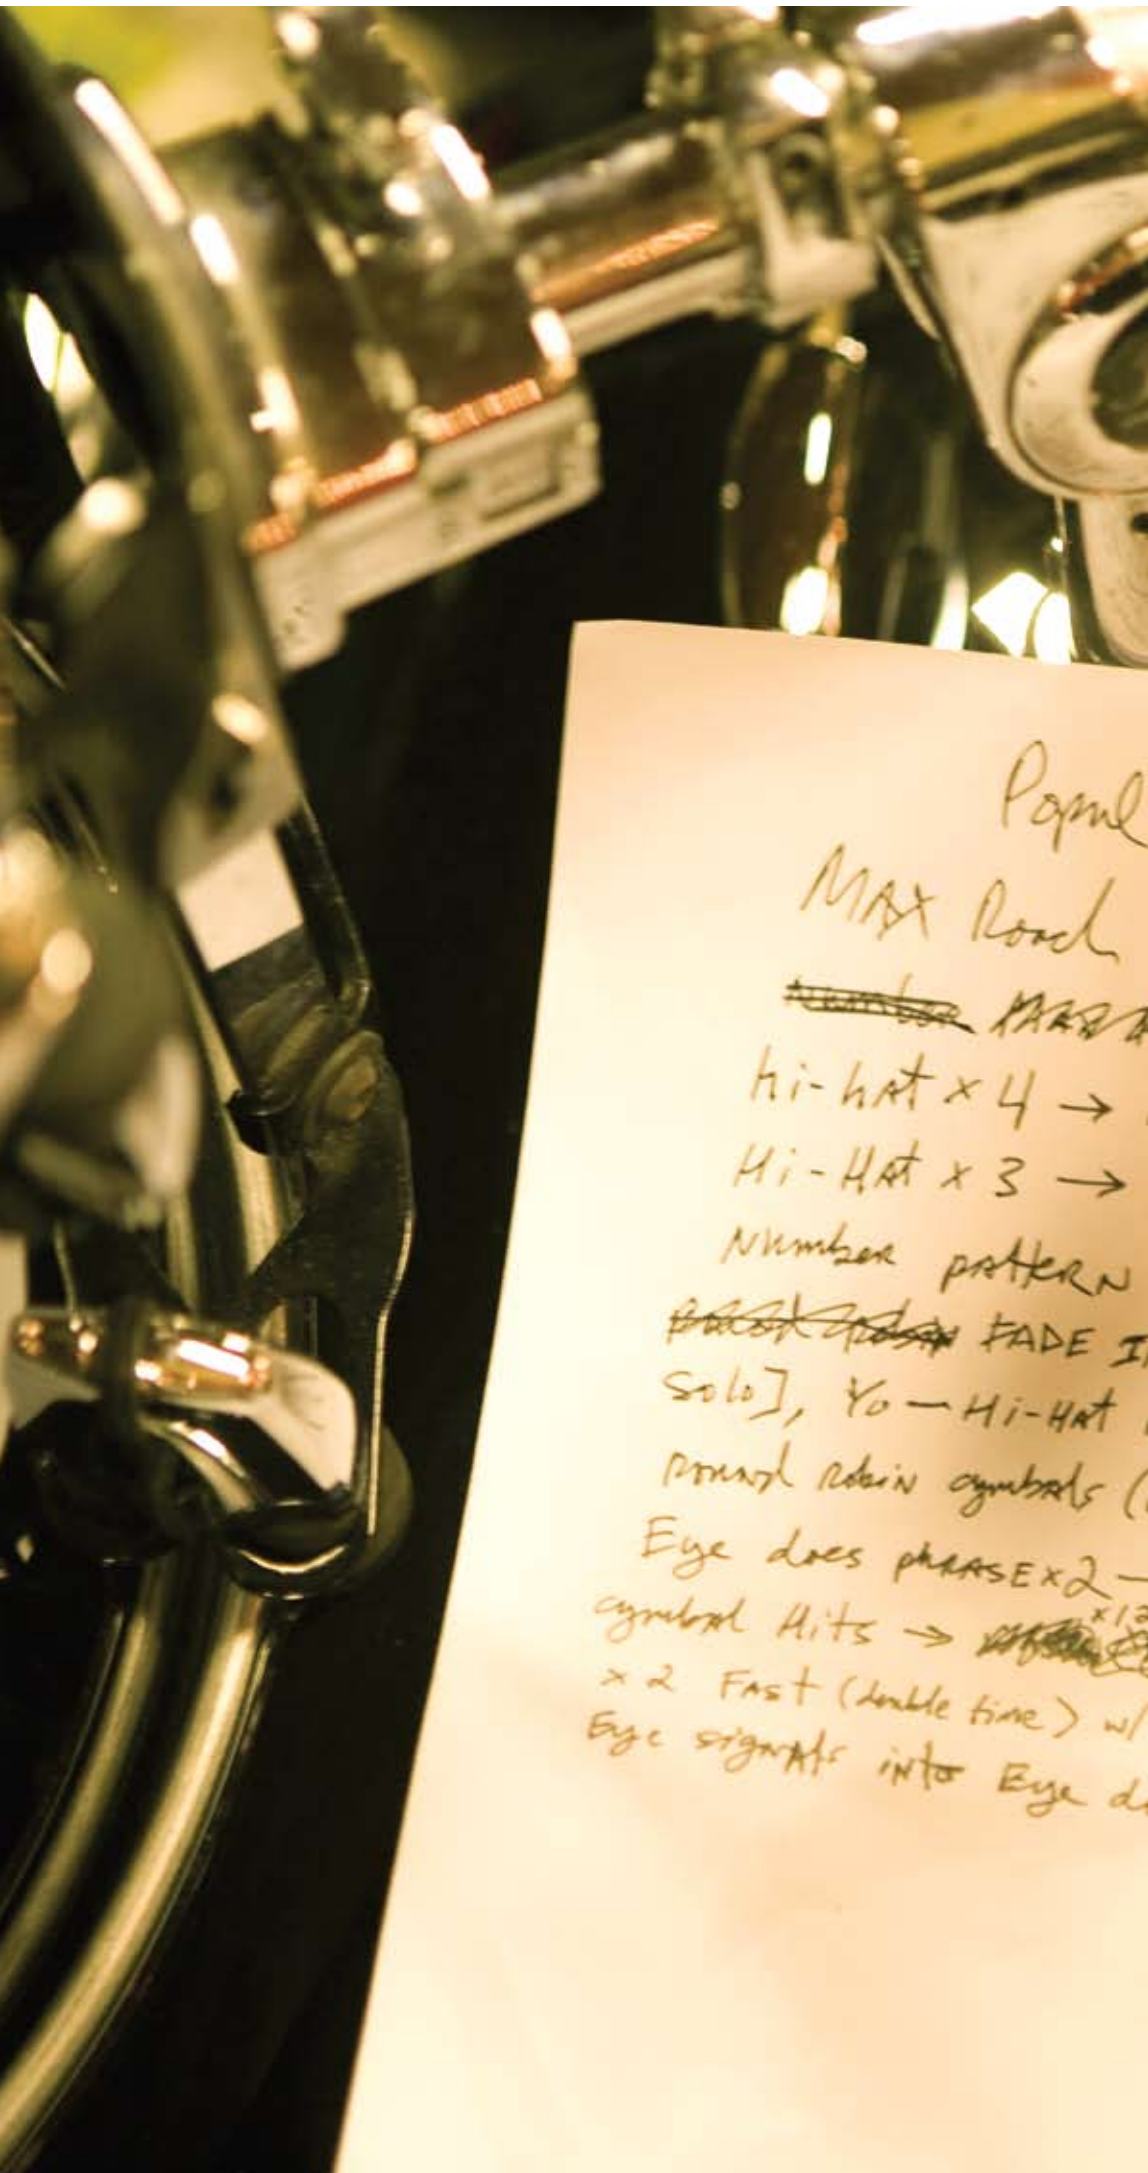 Popul
MAX Roach
Hi-hAt x 4 →
Hi-HAt x 3 →
Number pAtteRN
FADE I
Solo], Yo — Hi-HAt
round Robin cymbals (
Eye does phRASE x 2 —
cymbal Hits → x 13
x 2 FAst (double time) w/
Eye signals into Eye d